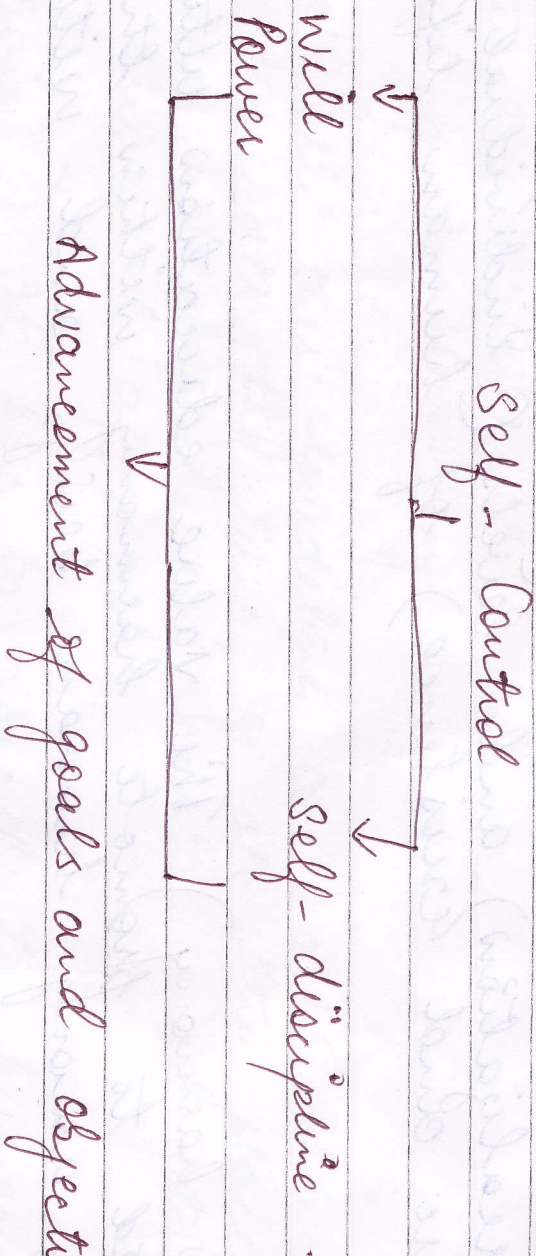 Self-Control
Will Self-discipline.
Power
Advancement of goals and objecti